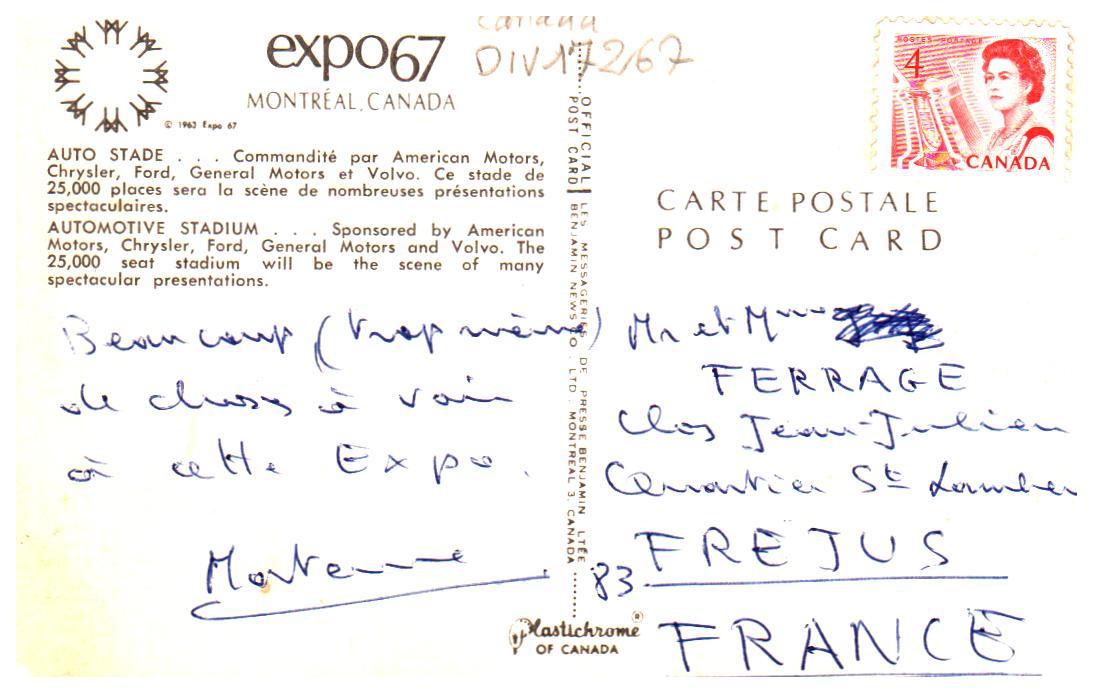 Canada
DIV172/67
expo67
MONTRÉAL, CANADA
© 1963 Expo 67
AUTO STADE . . . Commandité par American Motors,
Chrysler, Ford, General Motors et Volvo. Ce stade de
25,000 places sera la scène de nombreuses présentations
spectaculaires.
AUTOMOTIVE STADIUM . . . Sponsored by American
Motors, Chrysler, Ford, General Motors and Volvo. The
25,000 seat stadium will be the scene of many
spectacular presentations.
Beaucoup (trop même)
de choses à voir
à cette Expo.
OFFICIAL POST CARD
LES MESSAGERIES DE PRESSE BENJAMIN LTÉE
BENJAMIN NEWS CO. LTD. MONTREAL 3, CANADA
Plastichrome ®
OF CANADA
POSTES POSTAGE
4
CANADA
CARTE POSTALE
POST CARD
Mr et Mme
FERRAGE
Clos Jean-Julien
Quartier St Lambert
83. FREJUS
FRANCE